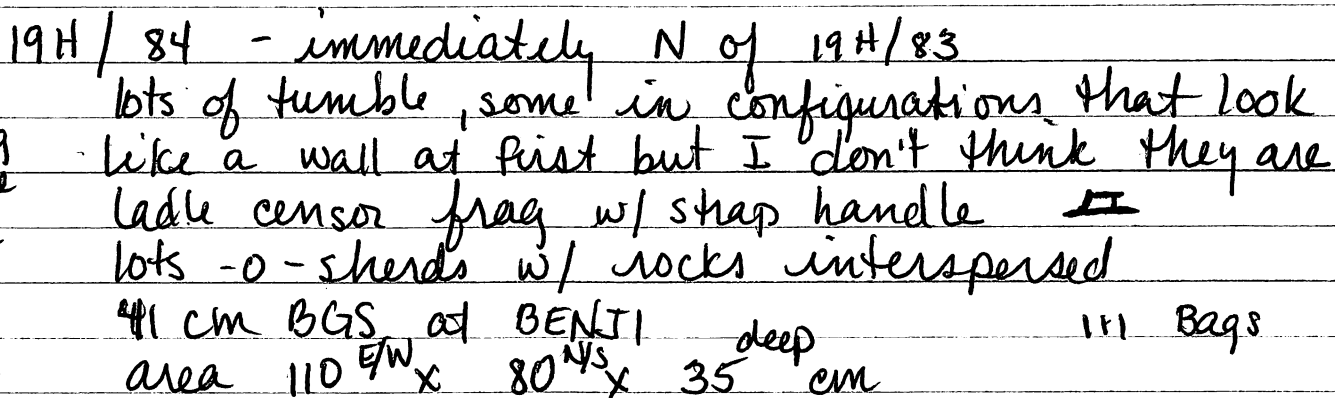 19H / 84 - immediately N of 19H/83
lots of tumble, some in configurations that look
like a wall at first but I don't think they are
ladle censor frag w/ strap handle
lots -o- sherds w/ rocks interspersed
41 cm BGS at BENJI III Bags
area 110 E/W x 80 N/S x 35 deep cm